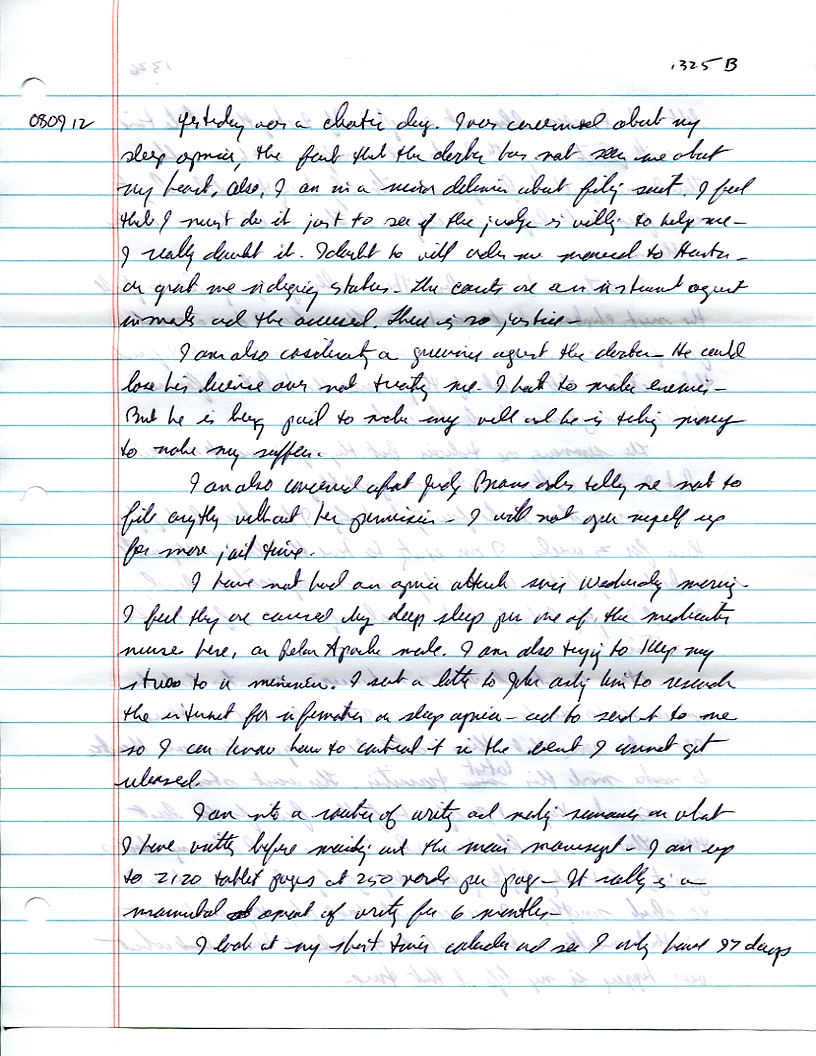 1325 B
080912 Yesterday was a chaotic day. I was concerned about my
sleep apnia, the fact that the doctor has not seen me about
my heart, also, I am in a about filing suit. I feel
that I must do it just to see if the judge is willing to help me -
I really doubt it. I doubt to will order me moved to
or grant me indigency status - the courts are an instrument against
inmates and the accused. There is no justice -
I am also considering a grievance against the doctor - He could
lose his license over not treating me. I hate to make enemies -
But he is being paid to make my well and he is taking money
to make my suffer.
I am also concerned about Judy orders telling me not to
file anything without her permission - I will not open myself up
for more jail time.
I have not had an apnia attack since Wednesday morning -
I feel they are caused by deep sleep per one of the medication
nurse here, an Apache male. I am also trying to keep my
stress to a minimum. I sent a letter to asking him to research
the internet for information on sleep apnia - and to send it to me
so I can know how to control it in the event I cannot get
released.
I am into a routine of writing and making summaries on what
I have written before mailing out the main manuscript - I am up
to 2120 tablet pages at 250 words per page - It really is a
amount of writing for 6 months -
I look at my short timer calendar and see I only have 97 days